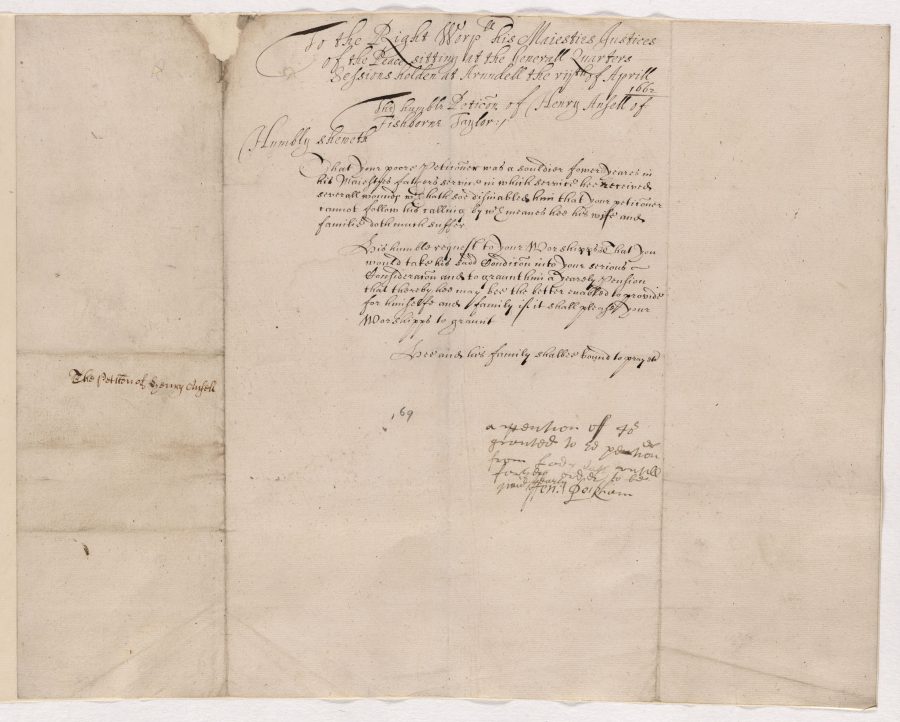 To the Right Worpll his Maiesties Justices
of the Peace sitting at the Generall Quarters
Sessions holden at Arundell the of Aprill
1662
The humble Peticon of Henry Ansell of
Fishborne Taylor:/
Humbly sheweth
That your poore Petitioner was a souldier fower yeares in
his Maiesties fathers service in which service hee received
severall wounds wch hath soe disinabled him that your petitioner
cannot follow his calling by wch meanes hee his wife and
familie doth much suffer
His humble request to your Worshipps That you
would take his sadd Condicon into your serious
Consideracon and to graunt him a yearely Pension
that thereby hee may bee the better enabled to provide
for himselfe and family if it shall please your
Worshipps to graunt
Hee and his family shalbee bound to pray &c
The Peticon of Henry Ansell
169
a pention of 40s
granted to
from
order to be
paid yearly
Peckham